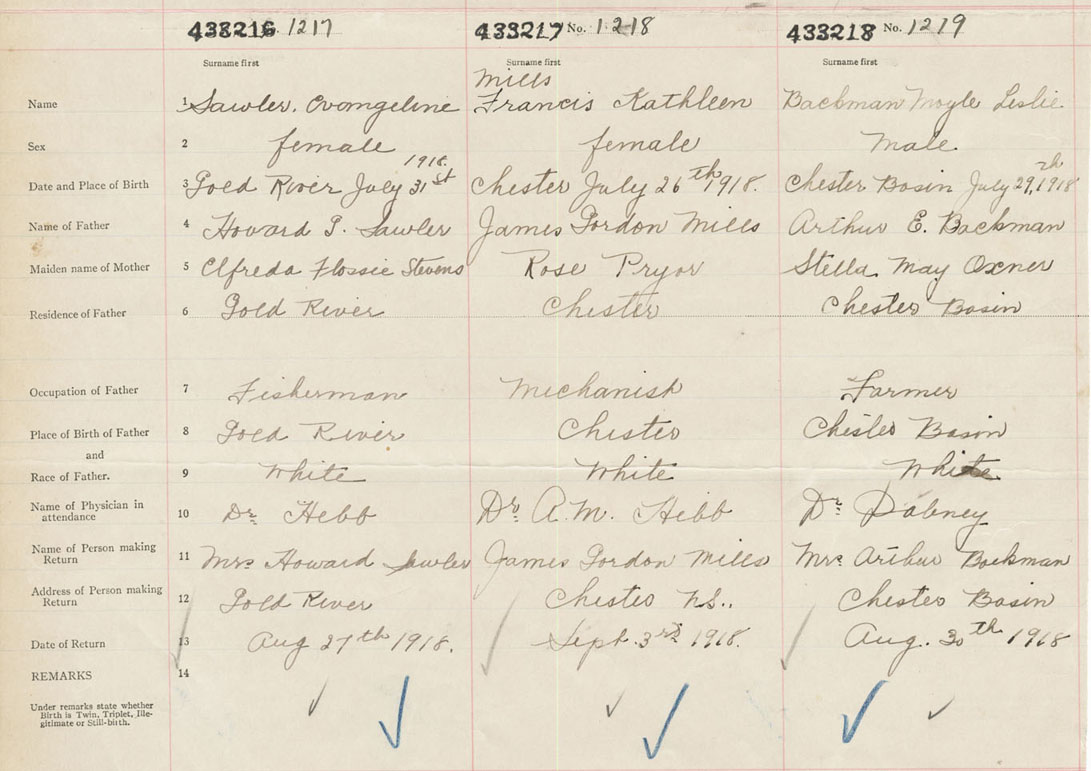 433216 No. 1217 433217 No. 1218 433218 No. 1219
Surname first Surname first Surname first
Mills
Name 1 Sawler, Evangeline Francis Kathleen Backman Moyle Leslie
Sex 2 female female Male
1918.
Date and Place of Birth 3 Gold River July 31st Chester July 26th 1918. Chester Basin July 29th, 1918
Name of Father 4 Howard G. Sawler James Gordon Mills Arthur E. Backman
Maiden name of Mother 5 Elfreda Flossie Stevens Rose Pryor Stella May Oxner
Residence of Father 6 Gold River Chester Chester Basin
Occupation of Father 7 Fisherman Mechanist Farmer
Place of Birth of Father 8 Gold River Chester Chester Basin
and
Race of Father. 9 White White White
Name of Physician in
attendance 10 Dr. Hebb Dr. A.M. Hebb Dr.
Name of Person making
Return 11 Mrs Howard Sawler James Gordon Mills Mrs Arthur Backman
Address of Person making
Return 12 Gold River Chester N.S.. Chester Basin
Date of Return 13 Aug 27th 1918. Sept. 3rd 1918. Aug. 30th 1918
REMARKS 14
Under remarks state whether
Birth is Twin, Triplet, Ille-
gitimate or Still-birth.